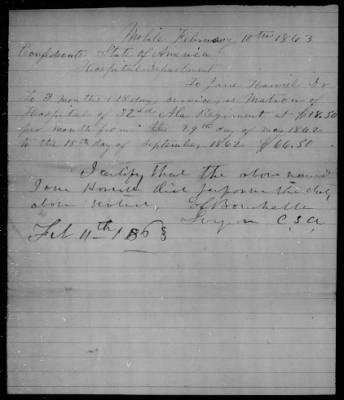 Mobile February 10th 1863
Confederate State of America
Hospital department
To Jane Howill Dr
To 3 months & 18 days services as Matron of
Hospital of 32nd Ala Regiment at $18.50
per month from the 29th day of may 1862
to the 18th day of September 1862 $66.50
I certify that the above named
Jane Howill did perform the duty
above
Surgeon C.S.A
Feb 11th 1863